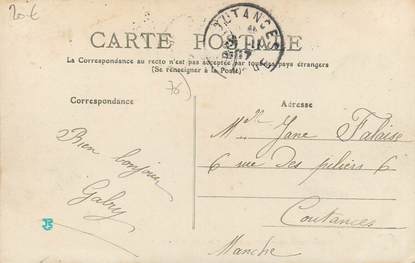 20€
COUTANCES
CARTE POSTALE
La Correspondance au recto n'est pas acceptée par tous les pays étrangers
(Se renseigner à la Poste)
76
Correspondance
Adresse
Bien bonjour
Gabry
Melle Jane Falaise
6 rue des piliers 6
Coutances
Manche